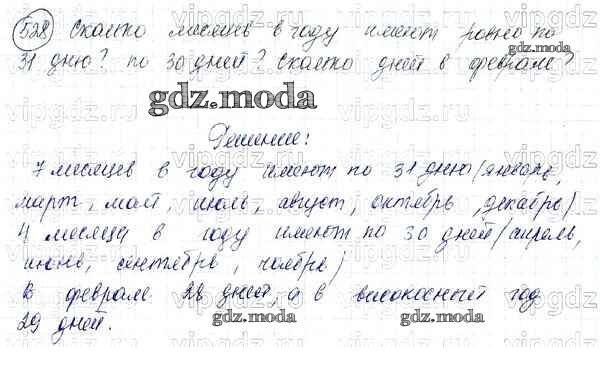 528 Сколько месяцев в году имеют ровно по
31 дню? по 30 дней? Сколько дней в феврале?
gdz.moda
Решение:
7 месяцев в году имеют по 31 дню (январь,
март, май, июль, август, октябрь, декабрь)
4 месяца в году имеют по 30 дней (апрель,
июнь, сентябрь, ноябрь)
В феврале 28 дней, а в високосный год
29 дней.
gdz.moda
gdz.moda
gdz.moda